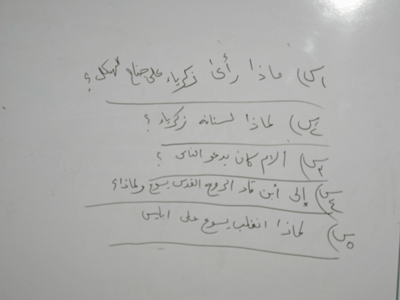 س١) ماذا رأى زكرياء على جناح الهيكل ؟
س٢) لماذا لسنانه زكرياء ؟
س٣) ألام كان يدعو الناس ؟
س٤) إلى أين قاد الروح القدس يسوع ولماذا؟
س٥) لماذا انغلب يسوع على ابليس